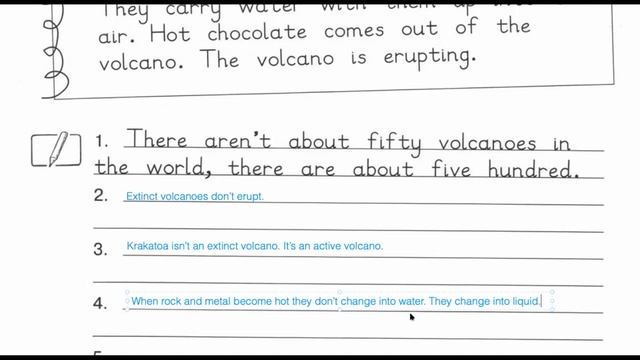 They carry water with them up
air. Hot chocolate comes out of the
volcano. The volcano is erupting.
1. There aren't about fifty volcanoes in
the world, there are about five hundred.
2. Extinct volcanoes don't erupt.
3. Krakatoa isn't an extinct volcano. It's an active volcano.
4. When rock and metal become hot they don't change into water. They change into liquid.